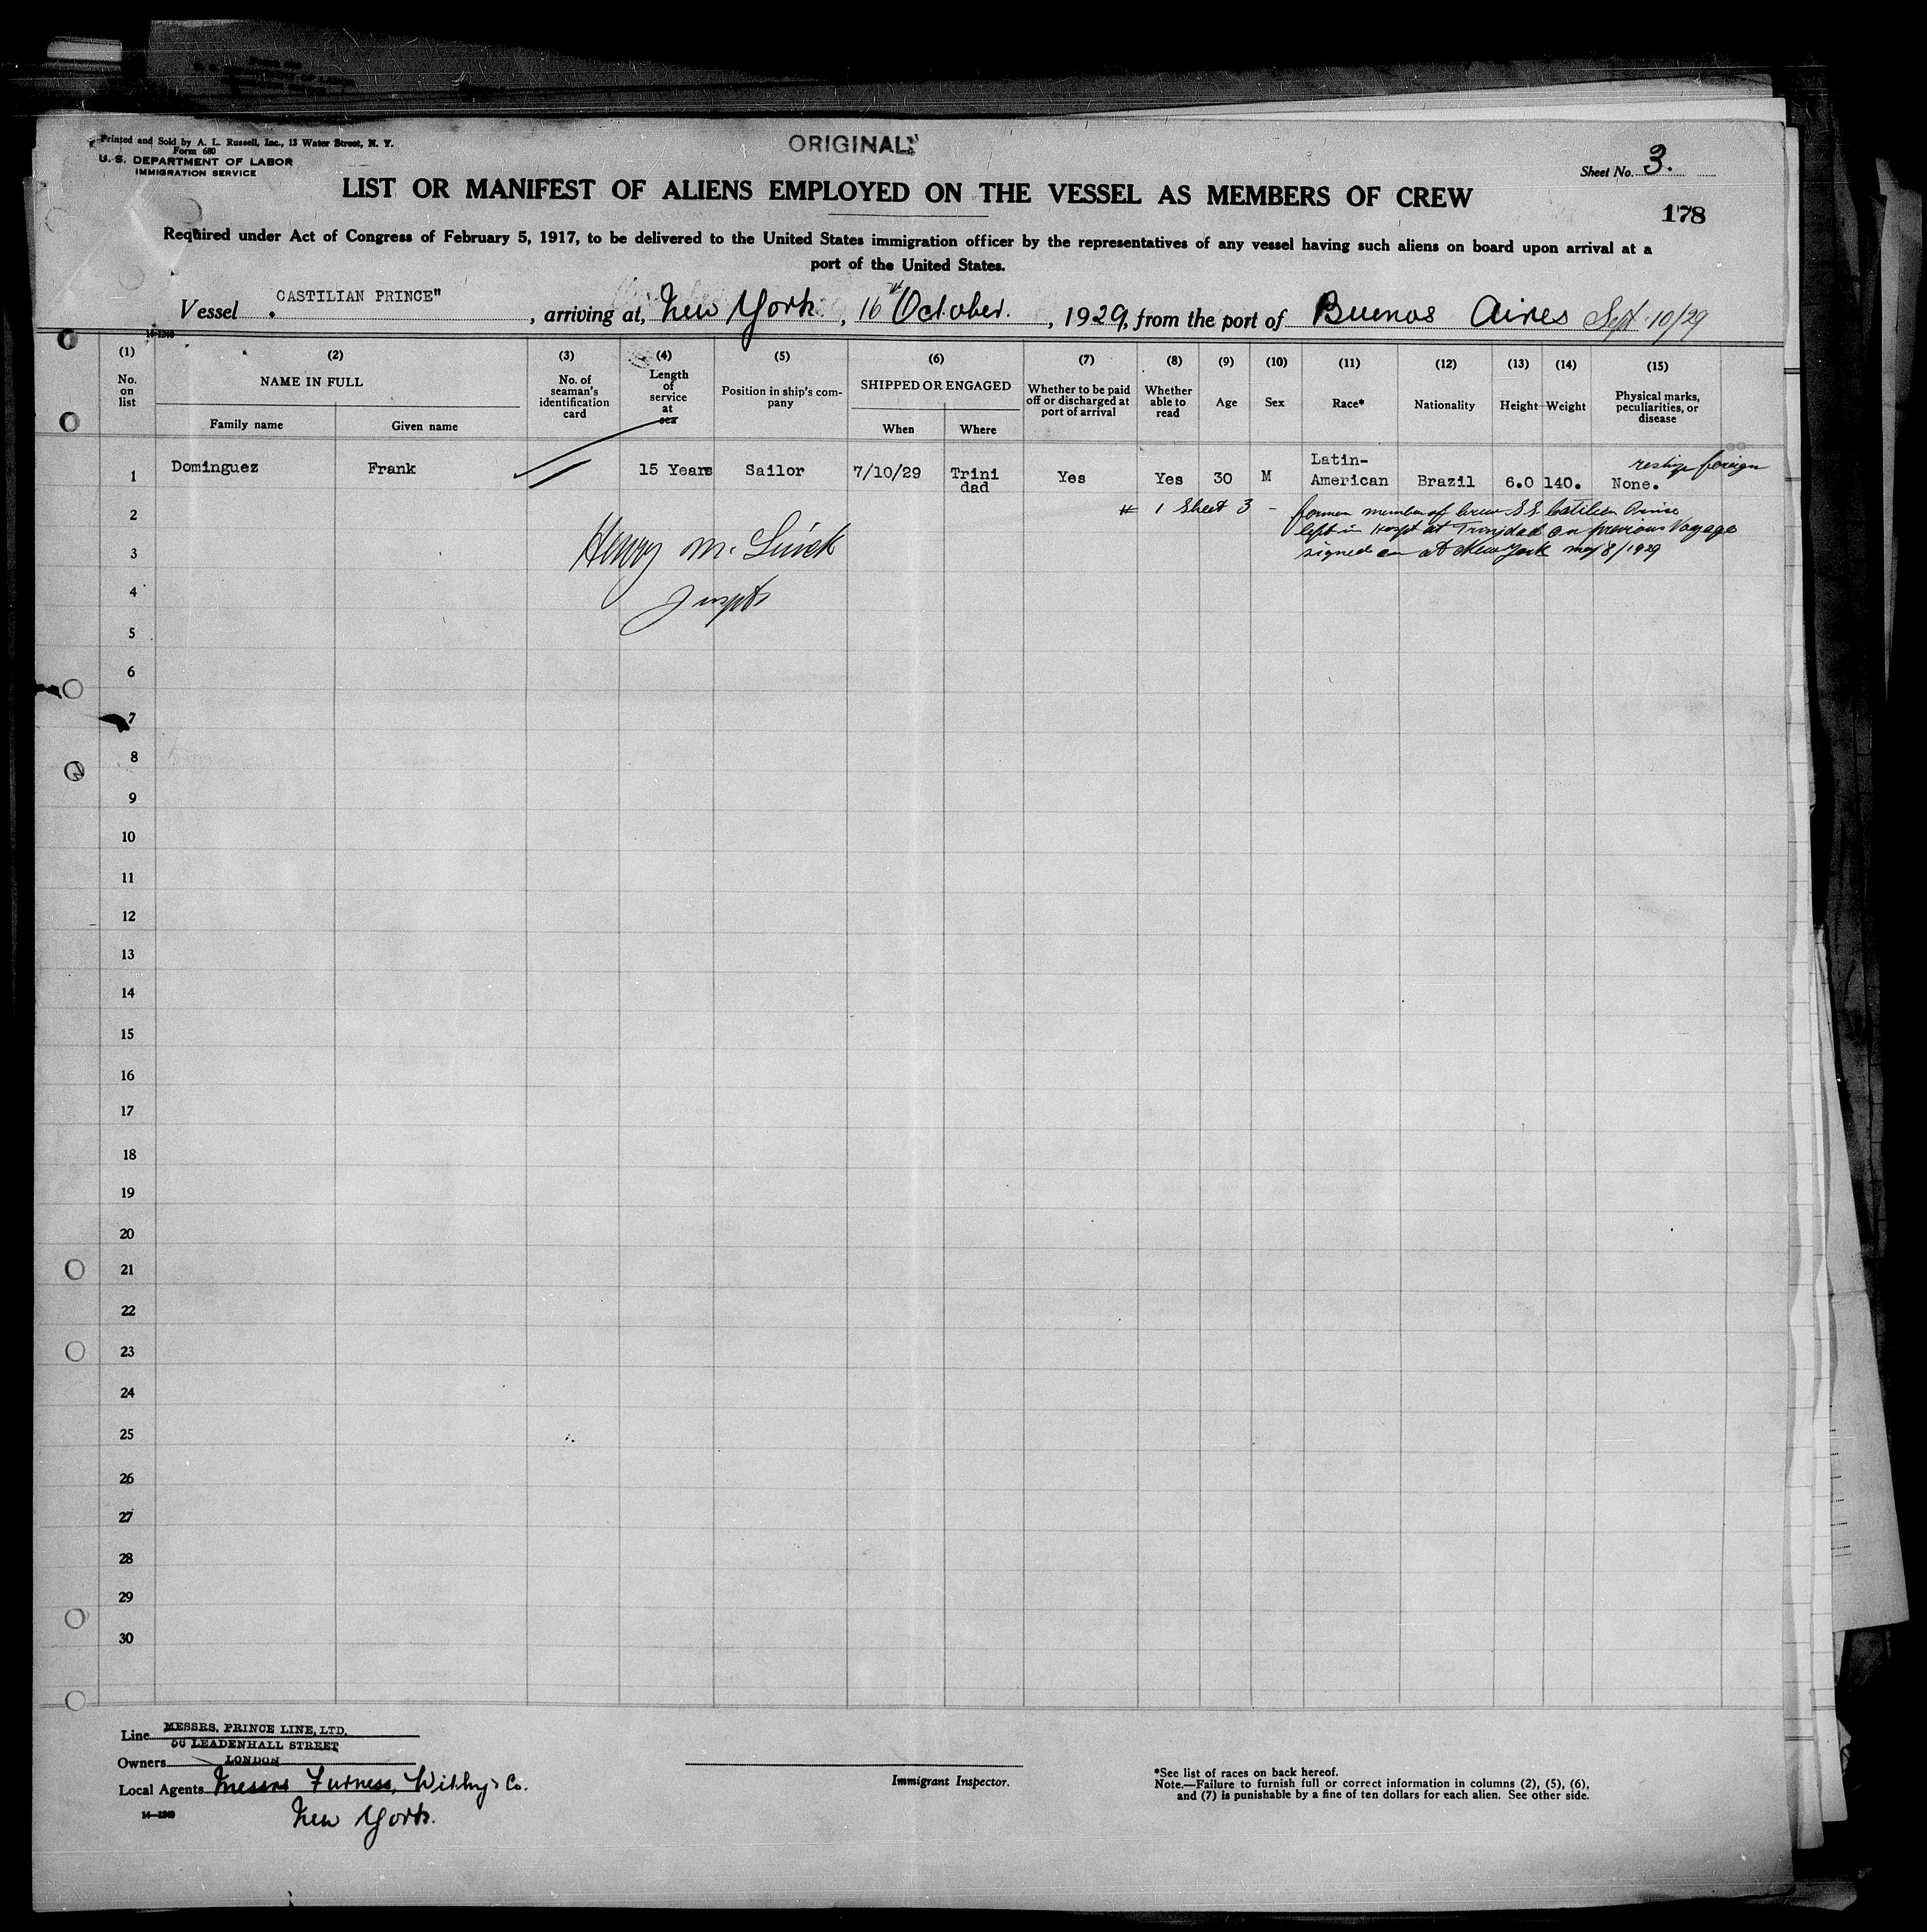 Printed and Sold by A. L. Russell, Inc., 13 Water Street, N. Y.
Form 680
U. S. DEPARTMENT OF LABOR
IMMIGRATION SERVICE
ORIGINAL
Sheet No. 3.
LIST OR MANIFEST OF ALIENS EMPLOYED ON THE VESSEL AS MEMBERS OF CREW
178
Required under Act of Congress of February 5, 1917, to be delivered to the United States immigration officer by the representatives of any vessel having such aliens on board upon arrival at a
port of the United States.
Vessel CASTILIAN PRINCE", arriving at, New York, 16th October., 1929, from the port of Buenos Aires Sept 10/29
14-1240
(1) (2) (3) (4) (5) (6) (7) (8) (9) (10) (11) (12) (13) (14) (15)
No. on list
NAME IN FULL
Family name Given name
No. of seaman's identification card
Length of service at sea
Position in ship's company
SHIPPED OR ENGAGED
When Where
Whether to be paid off or discharged at port of arrival
Whether able to read
Age
Sex
Race*
Nationality
Height
Weight
Physical marks, peculiarities, or disease
1 Dominguez Frank 15 Years Sailor 7/10/29 Trinidad Yes Yes 30 M Latin-American Brazil 6.0 140. None.
foreign
# 1 Sheet 3 - former member of crew S.S. Castilian Prince
left in Hospt at Trinidad on previous Voyage
signed on at New York May 8/1929
Henry M.
2
3
4
5
6
7
8
9
10
11
12
13
14
15
16
17
18
19
20
21
22
23
24
25
26
27
28
29
30
Line MESSRS. PRINCE LINE, LTD.
56 LEADENHALL STREET
Owners LONDON
Local Agents Messrs Furness, Withy & Co.
New York.
14-1240
Immigrant Inspector.
*See list of races on back hereof.
Note.—Failure to furnish full or correct information in columns (2), (5), (6),
and (7) is punishable by a fine of ten dollars for each alien. See other side.